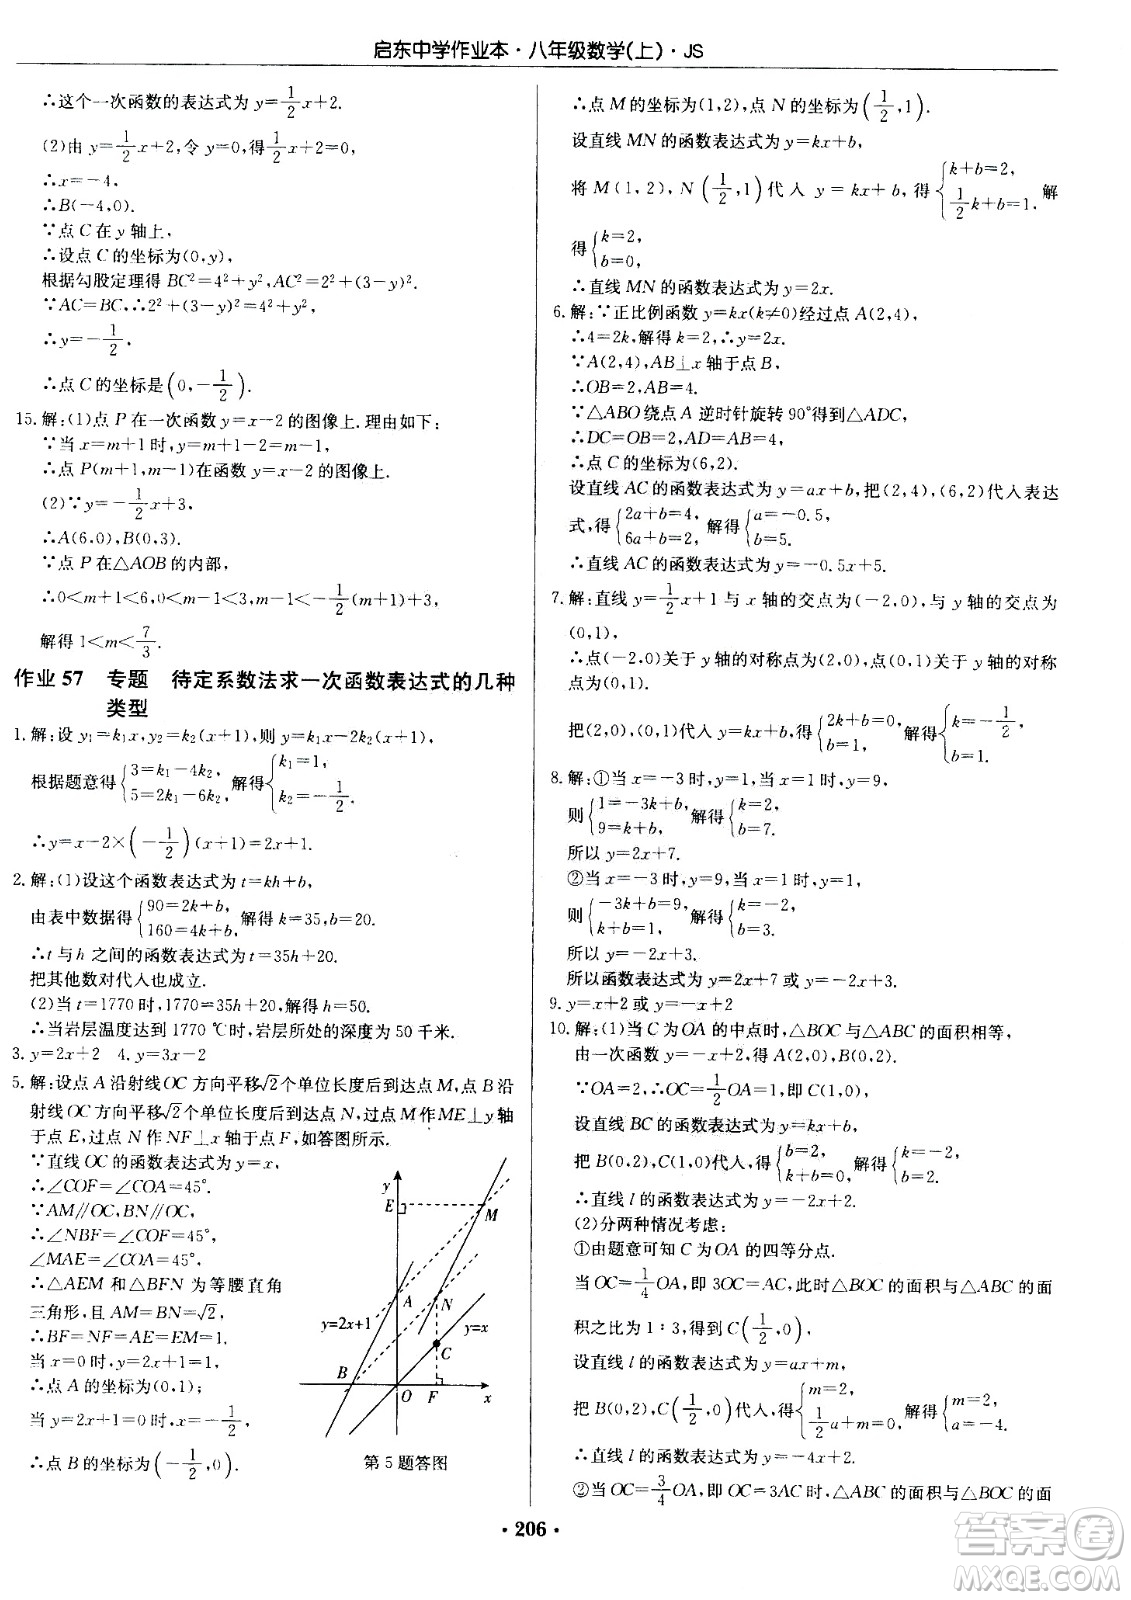 启东中学作业本·八年级数学(上)·JS
∴这个一次函数的表达式为 y=1/2x+2.
(2)由 y=1/2x+2,令 y=0,得1/2x+2=0,
∴x=-4,
∴B(-4,0).
∵点 C 在 y 轴上,
∴设点 C 的坐标为(0,y),
根据勾股定理得 BC²=4²+y²,AC²=2²+(3-y)².
∵AC=BC,∴2²+(3-y)²=4²+y²,
∴y=-1/2,
∴点 C 的坐标是(0,-1/2).
15.解:(1)点 P 在一次函数 y=x-2 的图像上.理由如下:
∵当 x=m+1 时,y=m+1-2=m-1,
∴点 P(m+1,m-1)在函数 y=x-2 的图像上.
(2)∵y=-1/2x+3,
∴A(6,0),B(0,3).
∵点 P 在△AOB 的内部,
∴0<m+1<6,0<m-1<-1/2(m+1)+3,
解得 1<m<7/3.
作业 57 专题 待定系数法求一次函数表达式的几种
类型
1.解:设 y₁=k₁x,y₂=k₂(x+1),则 y=k₁x-2k₂(x+1),
根据题意得{3=k₁-4k₂, 5=2k₁-6k₂, 解得{k₁=1, k₂=-1/2.
∴y=x-2×(-1/2)(x+1)=2x+1.
2.解:(1)设这个函数表达式为 t=kh+b,
由表中数据得{90=2k+b, 160=4k+b, 解得 k=35,b=20.
∴t 与 h 之间的函数表达式为 t=35h+20.
把其他数对代入也成立.
(2)当 t=1770 时,1770=35h+20,解得 h=50.
∴当岩层温度达到 1770 ℃时,岩层所处的深度为 50 千米.
3.y=2x+2 4.y=3x-2
5.解:设点 A 沿射线 OC 方向平移√2个单位长度后到达点 M,点 B 沿
射线 OC 方向平移√2个单位长度后到达点 N,过点 M 作 ME⊥y 轴
于点 E,过点 N 作 NF⊥x 轴于点 F,如答图所示.
∵直线 OC 的函数表达式为 y=x,
∴∠COF=∠COA=45°.
∵AM∥OC,BN∥OC,
∴∠NBF=∠COF=45°,
∠MAE=∠COA=45°,
∴△AEM 和△BFN 为等腰直角
三角形,且 AM=BN=√2,
∴BF=NF=AE=EM=1.
当 x=0 时,y=2x+1=1,
∴点 A 的坐标为(0,1);
当 y=2x+1=0 时,x=-1/2,
∴点 B 的坐标为(-1/2,0).
y
E
M
A
N
y=2x+1
y=x
C
B
O
F
x
第 5 题答图
∴点 M 的坐标为(1,2),点 N 的坐标为(1/2,1).
设直线 MN 的函数表达式为 y=kx+b,
将 M(1,2),N(1/2,1)代入 y=kx+b,得{k+b=2, 1/2k+b=1. 解
得{k=2, b=0,
∴直线 MN 的函数表达式为 y=2x.
6.解:∵正比例函数 y=kx(k≠0)经过点 A(2,4),
∴4=2k,解得 k=2,∴y=2x.
∵A(2,4),AB⊥x 轴于点 B,
∴OB=2,AB=4.
∵△ABO 绕点 A 逆时针旋转 90°得到△ADC,
∴DC=OB=2,AD=AB=4,
∴点 C 的坐标为(6,2).
设直线 AC 的函数表达式为 y=ax+b,把(2,4),(6,2)代入表达
式,得{2a+b=4, 6a+b=2, 解得{a=-0.5, b=5.
∴直线 AC 的函数表达式为 y=-0.5x+5.
7.解:直线 y=1/2x+1 与 x 轴的交点为(-2,0),与 y 轴的交点为
(0,1),
∴点(-2,0)关于 y 轴的对称点为(2,0),点(0,1)关于 y 轴的对称
点为(0,1).
把(2,0),(0,1)代入 y=kx+b,得{2k+b=0, b=1, 解得{k=-1/2, b=1.
8.解:①当 x=-3 时,y=1,当 x=1 时,y=9,
则{1=-3k+b, 9=k+b, 解得{k=2, b=7.
所以 y=2x+7.
②当 x=-3 时,y=9,当 x=1 时,y=1,
则{-3k+b=9, k+b=1, 解得{k=-2, b=3.
所以 y=-2x+3.
所以函数表达式为 y=2x+7 或 y=-2x+3.
9.y=x+2 或 y=-x+2
10.解:(1)当 C 为 OA 的中点时,△BOC 与△ABC 的面积相等,
由一次函数 y=-x+2,得 A(2,0),B(0,2).
∵OA=2,∴OC=1/2OA=1,即 C(1,0).
设直线 BC 的函数表达式为 y=kx+b,
把 B(0,2),C(1,0)代入,得{b=2, k+b=0, 解得{k=-2, b=2.
∴直线 l 的函数表达式为 y=-2x+2.
(2)分两种情况考虑:
①由题意可知 C 为 OA 的四等分点.
当 OC=1/4OA,即 3OC=AC,此时△BOC 的面积与△ABC 的面
积之比为 1∶3,得到 C(1/2,0),
设直线 l 的函数表达式为 y=ax+m,
把 B(0,2),C(1/2,0)代入,得{m=2, 1/2a+m=0, 解得{m=2, a=-4.
∴直线 l 的函数表达式为 y=-4x+2.
②当 OC=3/4OA,即 OC=3AC 时,△ABC 的面积与△BOC 的面
· 206 ·
答案卷
MXQE.COM